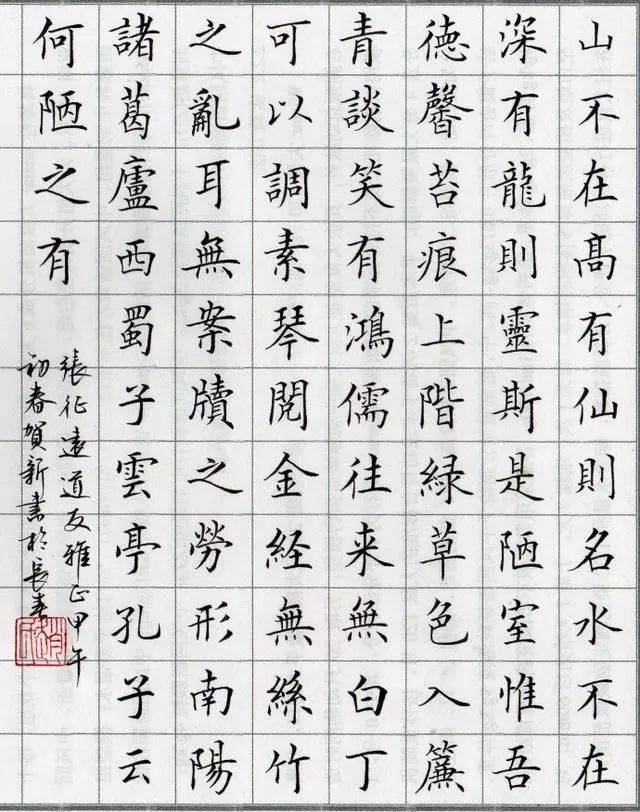 山不在高有仙則名水不在
深有龍則靈斯是陋室惟吾
德馨苔痕上階緑草色入簾
青談笑有鴻儒往来無白丁
可以調素琴閲金経無絲竹
之亂耳無案牘之勞形南陽
諸葛廬西蜀子雲亭孔子云
何陋之有
張征遠道友雅正甲午
初春賀新書於長春